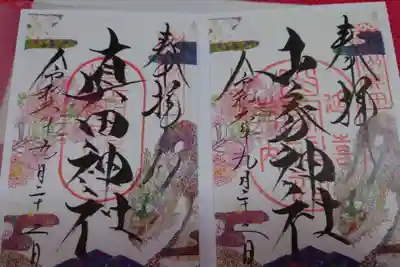 奉拝
山家神社
令和元年九月二十一日
奉拝
真田神社
令和元年九月二十一日